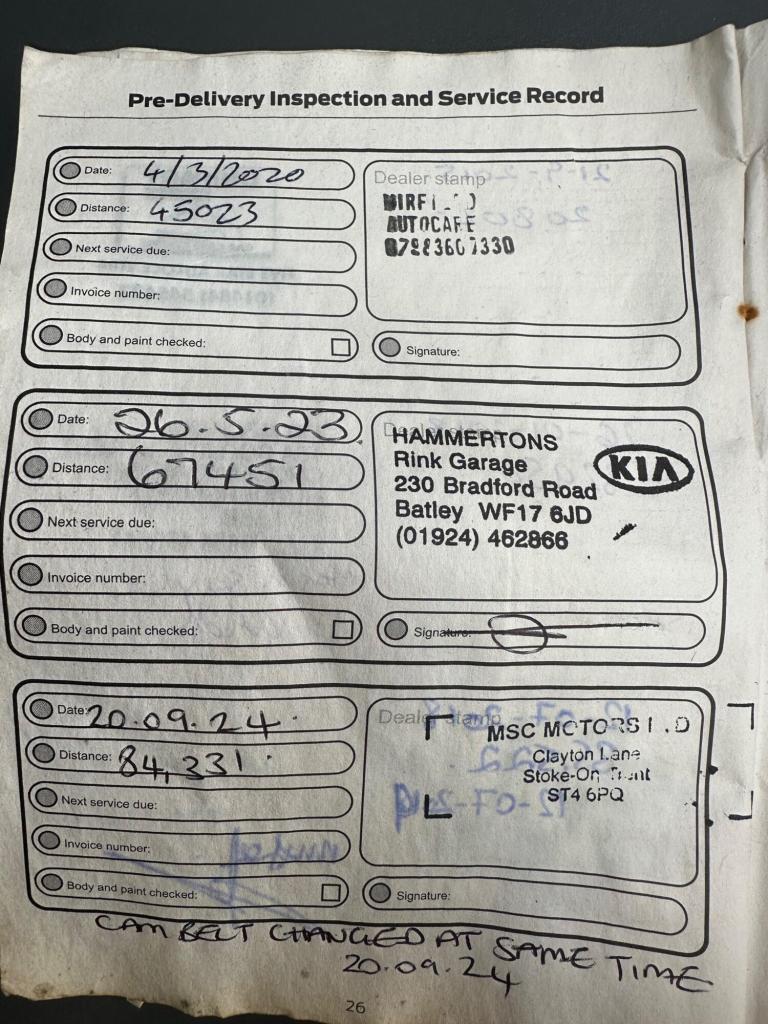 Pre-Delivery Inspection and Service Record
Date: 4/3/2020
Distance: 45023
Next service due:
Invoice number:
Body and paint checked:
Dealer stamp
AUTOCAFE
Signature:
Date: 26.5.23.
Distance: 67451
Next service due:
Invoice number:
Body and paint checked:
HAMMERTONS
Rink Garage
230 Bradford Road
Batley WF17 6JD
(01924) 462866
KIA
Signature:
Date: 20.09.24.
Distance: 84,331.
Next service due:
Invoice number:
Body and paint checked:
Dealer stamp
MSC MOTORS
Clayton Lane
Stoke-On Trent
ST4 6PQ
Signature:
CAM BELT CHANGED AT SAME TIME
20.09.24
26